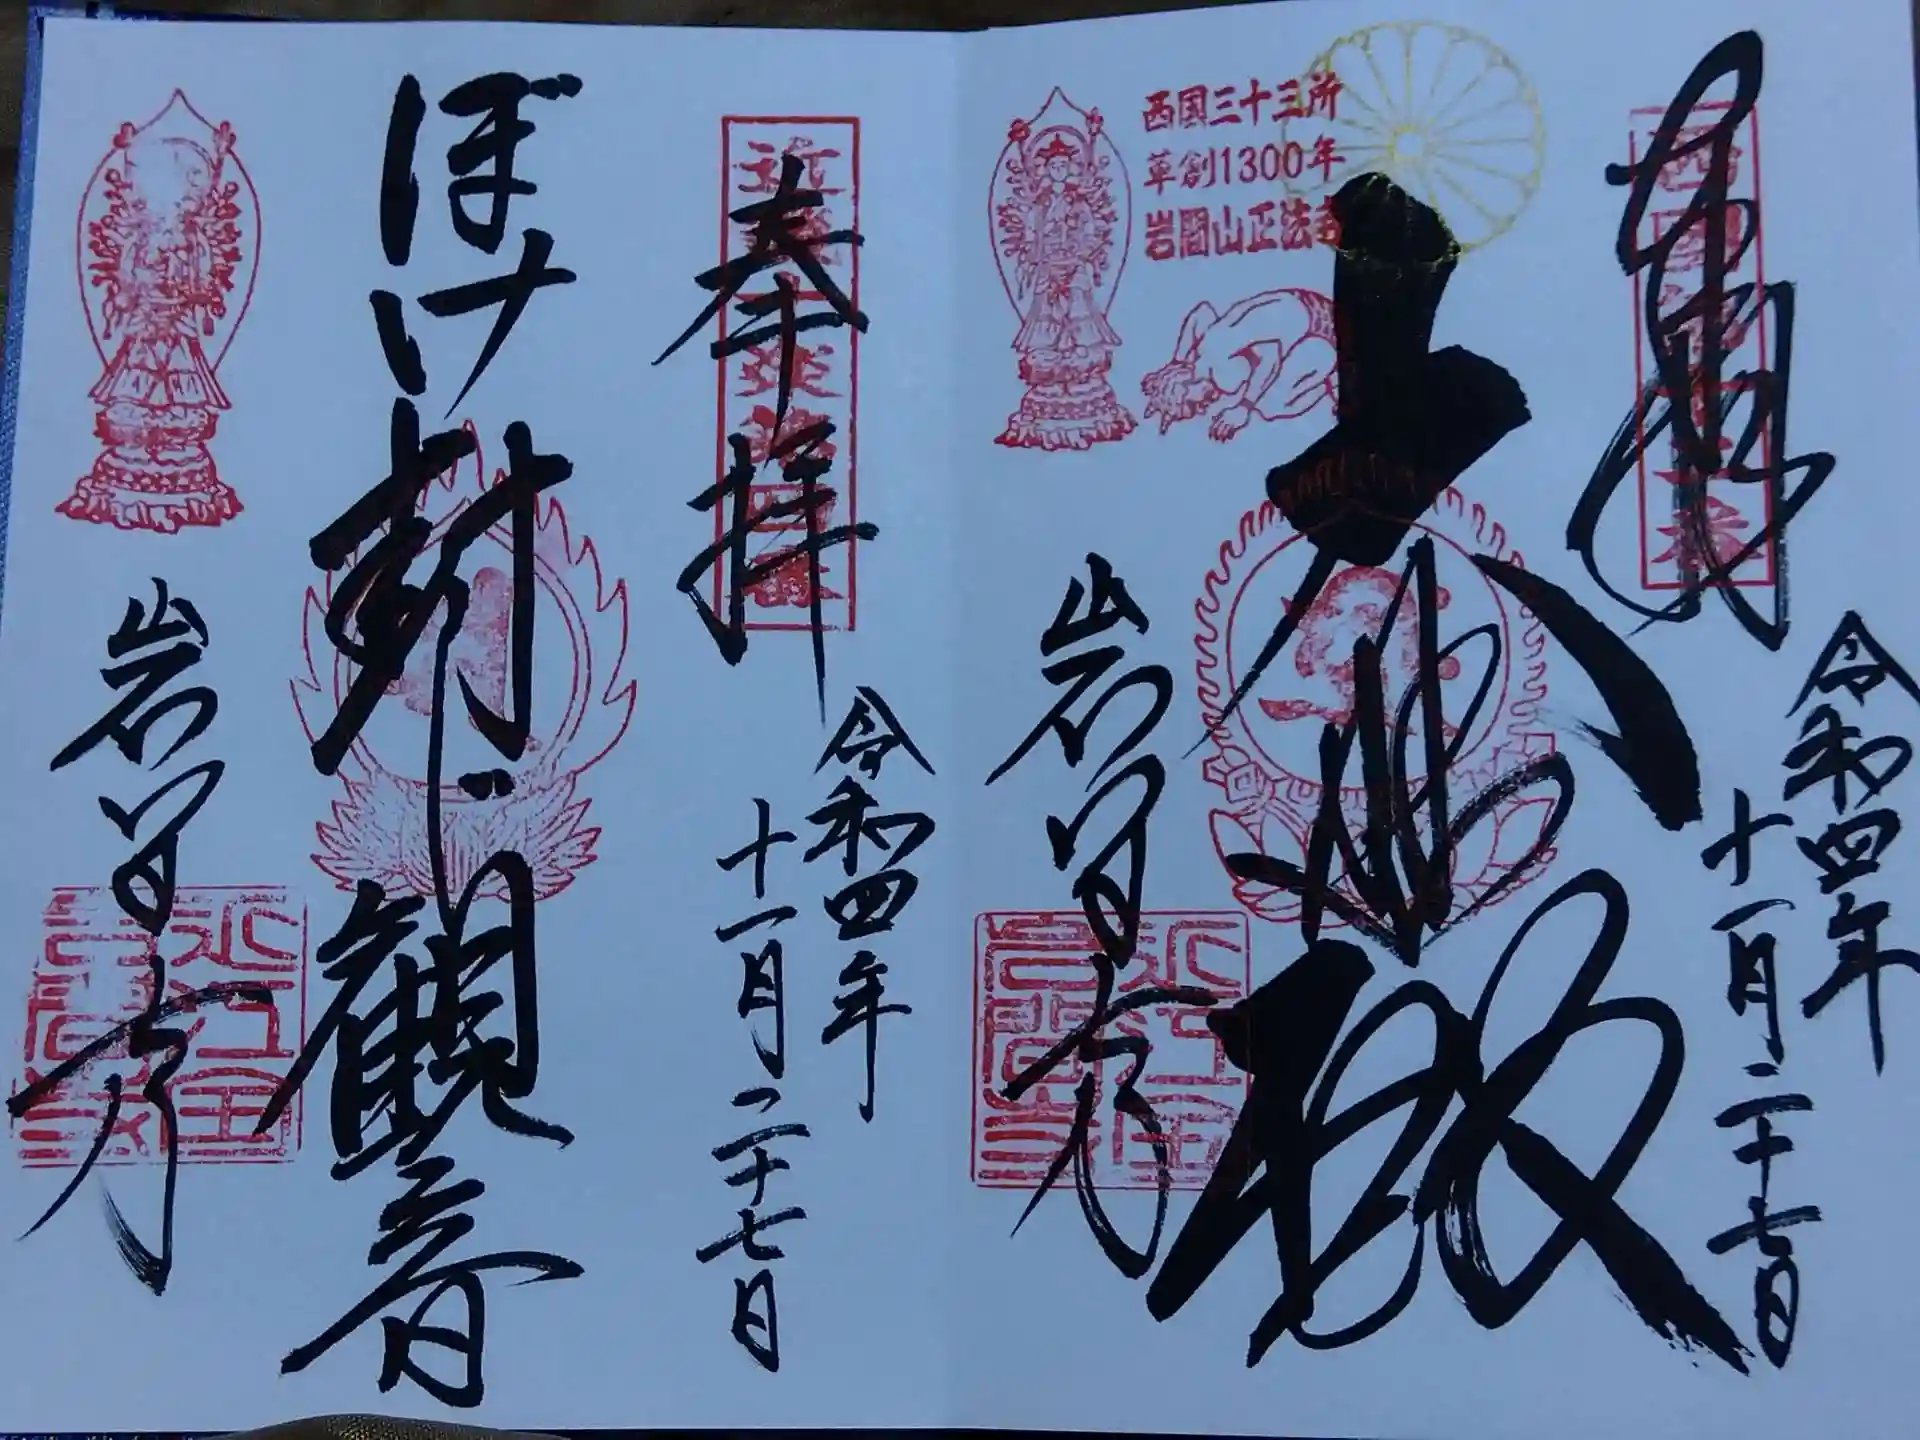 奉拝
令和四年
十一月二十七日
西国三十三所
草創1300年
岩間山正法寺
大悲殿
岩間寺
奉拝
令和四年
十一月二十七日
ぼけ封じ観音
岩間寺